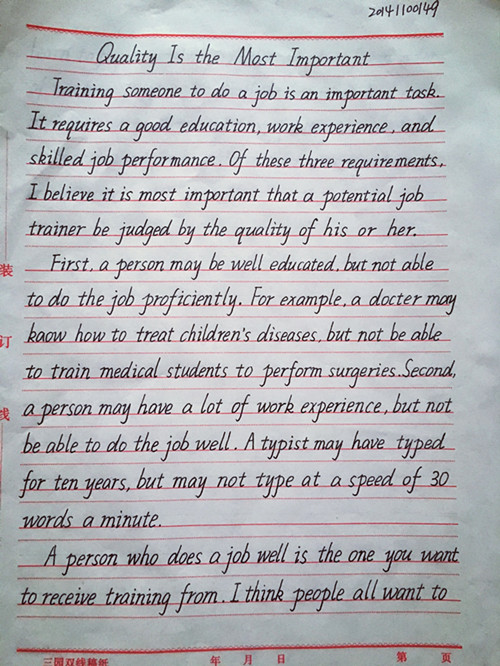 20141100149
Quality Is the Most Important
Training someone to do a job is an important task.
It requires a good education, work experience, and
skilled job performance. Of these three requirements,
I believe it is most important that a potential job
trainer be judged by the quality of his or her.
First, a person may be well educated, but not able
装
to do the job proficiently. For example, a docter may
kaow how to treat children's diseases, but not be able
订
to train medical students to perform surgeries. Second,
a person may have a lot of work experience, but not
线
be able to do the job well. A typist may have typed
for ten years, but may not type at a speed of 30
words a minute.
A person who does a job well is the one you want
to receive training from. I think people all want to
三园双线稿纸 年 月 日 第 页